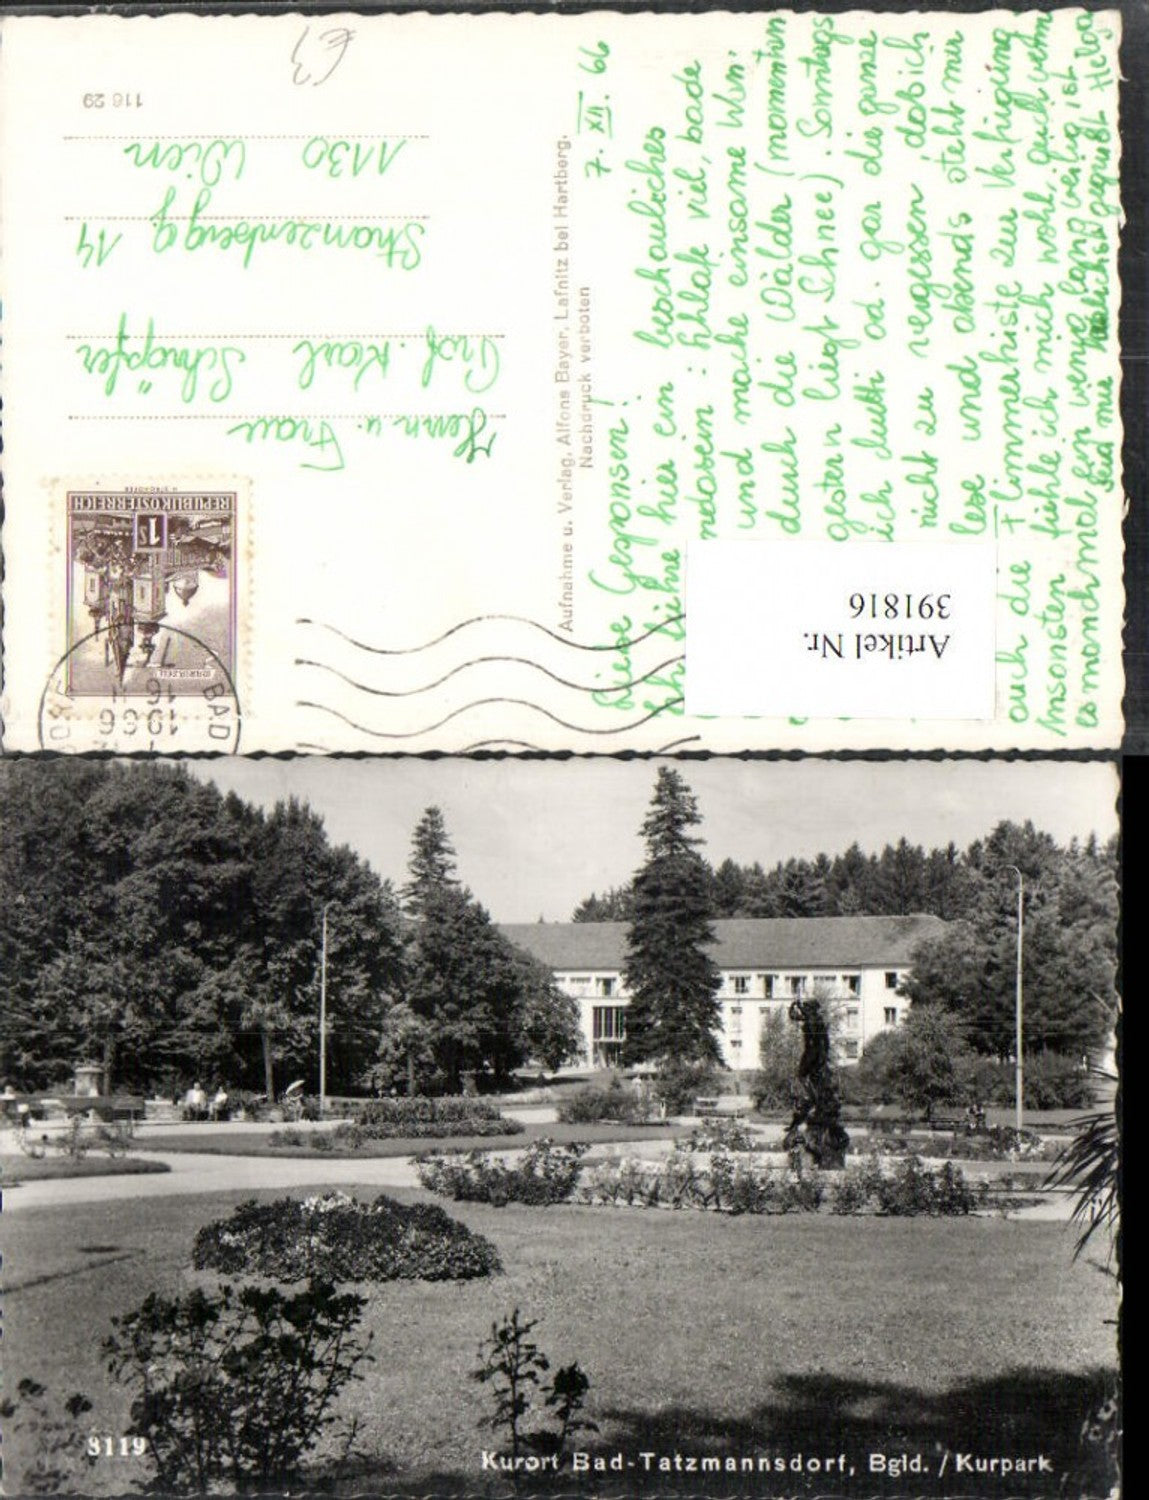 7. XII. 66
Liebe Gesponsen!
Ich führe hier ein beschauliches
: Schlafe viel, bade
und mache einsame Wan-
durch die Wälder (momentan
gestern liegt Schnee). Sonntags
ich Mutti od. gar die ganze
nicht zu vergessen, daß ich
lese und abends steht mir
auch die Flimmerkiste zur Verfügung
Ansonsten fühle ich mich wohl, auch wenn
es manchmal ein wenig langweilig ist
Seid mir herzlichst gegrüßt Helga
Aufnahme u. Verlag, Alfons Bayer, Lafnitz bei Hartberg.
Nachdruck verboten
REPUBLIK ÖSTERREICH
1 S
MARIAZELL
BAD
Herrn u. Frau
Prof. Karl Schöpfer
Stranzenbergg. 14
1130 Wien
116 29
€3
Artikel Nr.
391816
3119
Kurort Bad-Tatzmannsdorf, Bgld. / Kurpark